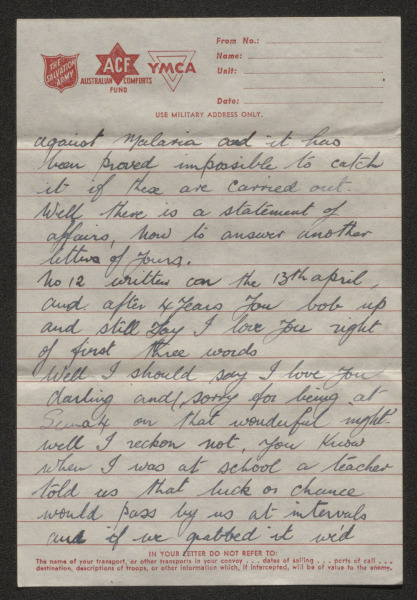 THE SALVATION ARMY
ACF
AUSTRALIAN COMFORTS
FUND
YMCA
From No.:
Name:
Unit:
Date:
USE MILITARY ADDRESS ONLY.
against Malaria and it has
been proved impossible to catch
it if these are carried out.
Well there is a statement of
affairs, now to answer another
letters of yours.
No 12 written on the 13th april,
and after 4 years you bob up
and still say I love you right
of first three words
Well I should say I love you
darling and, sorry for being at
on that wonderful night.
well I reckon not, you know
when I was at school a teacher
told us that luck or chance
would pass by us at intervals
and if we grabbed it we'd
IN YOUR LETTER DO NOT REFER TO:
The name of your transport, or other transports in your convoy . . . dates of sailing . . . ports of call . . .
destination, descriptions of troops, or other information which, if intercepted, will be of value to the enemy.